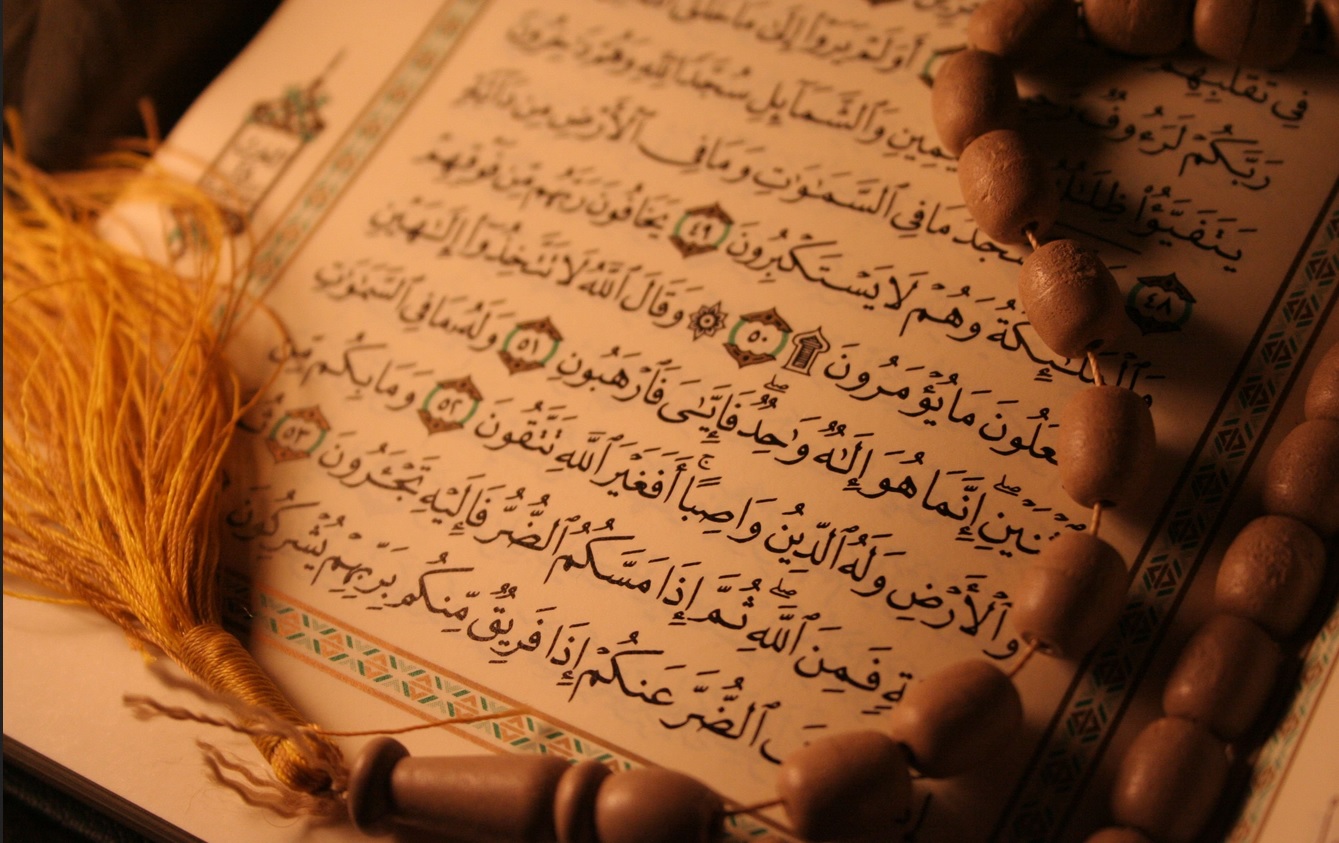 فِي تَقَلُّبِهِمۡ
رَبَّكُمۡ لَرَءُوفٞ أَوَلَمۡ يَرَوۡاْ إِلَىٰ مَا خَلَقَ
يَتَفَيَّؤُاْ ظِلَٰلُهُۥ وَٱلشَّمَآئِلِ سُجَّدٗا لِّلَّهِ وَهُمۡ دَٰخِرُونَ
٤٨ مَا فِي ٱلسَّمَٰوَٰتِ وَمَا فِي ٱلۡأَرۡضِ مِن دَآبَّةٖ
وَٱلۡمَلَٰٓئِكَةُ وَهُمۡ لَا يَسۡتَكۡبِرُونَ ٤٩ يَخَافُونَ رَبَّهُم مِّن فَوۡقِهِمۡ
مَا يُؤۡمَرُونَ ۩ ٥٠ ۞ وَقَالَ ٱللَّهُ لَا تَتَّخِذُوٓاْ إِلَٰهَيۡنِ
إِنَّمَا هُوَ إِلَٰهٞ وَٰحِدٞ فَإِيَّٰيَ فَٱرۡهَبُونِ ٥١ وَلَهُۥ مَا فِي ٱلسَّمَٰوَٰتِ
وَٱلۡأَرۡضِ وَلَهُ ٱلدِّينُ وَاصِبًاۚ أَفَغَيۡرَ ٱللَّهِ تَتَّقُونَ ٥٢ وَمَا بِكُم مِّن
فَمِنَ ٱللَّهِۖ ثُمَّ إِذَا مَسَّكُمُ ٱلضُّرُّ فَإِلَيۡهِ تَجۡـَٔرُونَ ٥٣
ٱلضُّرَّ عَنكُمۡ إِذَا فَرِيقٞ مِّنكُم بِرَبِّهِمۡ يُشۡرِكُونَ